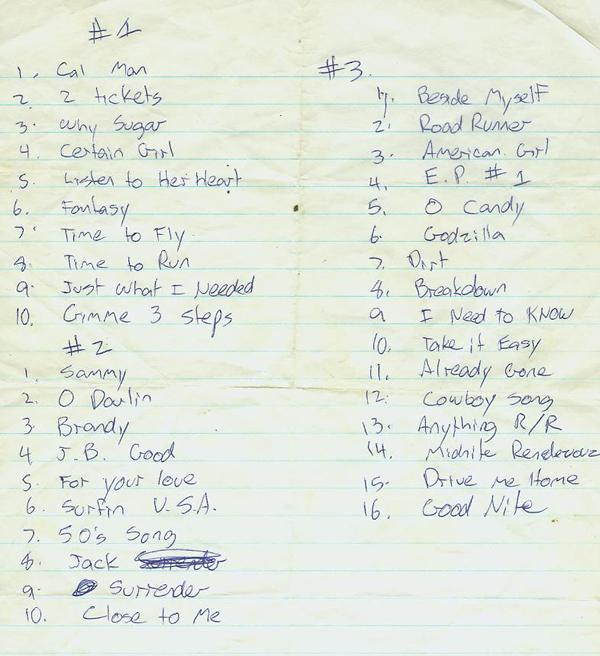 #1
1. Cal Man
2. 2 tickets
3. Why Sugar
4. Certain Girl
5. Listen to Her Heart
6. Fantasy
7. Time to Fly
8. Time to Run
9. Just What I Needed
10. Gimme 3 Steps
#2
1. Sammy
2. O Darlin
3. Brandy
4 J.B. Good
5. For your love
6. Surfin U.S.A.
7. 50's Song
8. Jack Surrender
9. Surrender
10. Close to Me
#3.
1. Beside Myself
2. Road Runner
3. American Girl
4. E.P. #1
5. O Candy
6. Godzilla
7. Dirt
8. Breakdown
9 I Need to KNOW
10. Take it Easy
11. Already Gone
12. Cowboy Song
13. Anything R/R
14. Midnite Rendevouz
15. Drive me Home
16. Good Nite